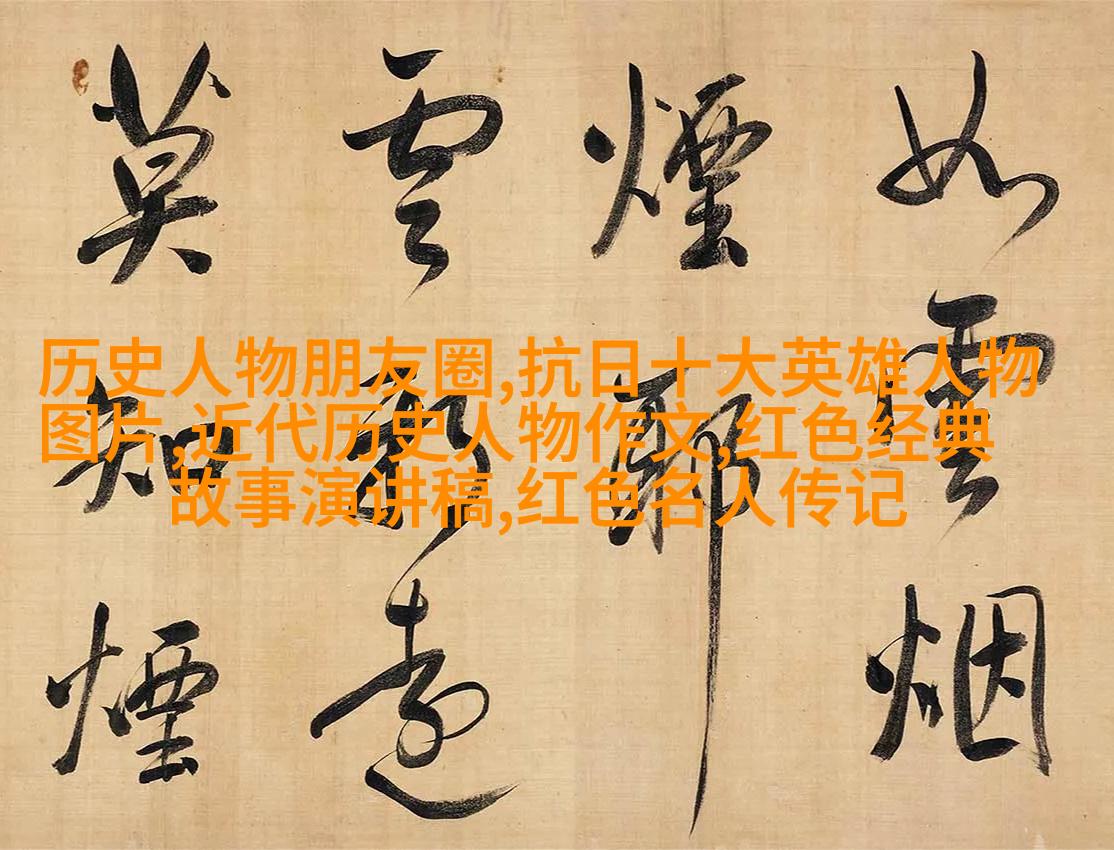 历史人物朋友圈,抗日十大英雄人物
图片,近代历史人物作文,红色经典
故事演讲稿,红色名人传记
如雲烟
煙
雲遠
莫知煙